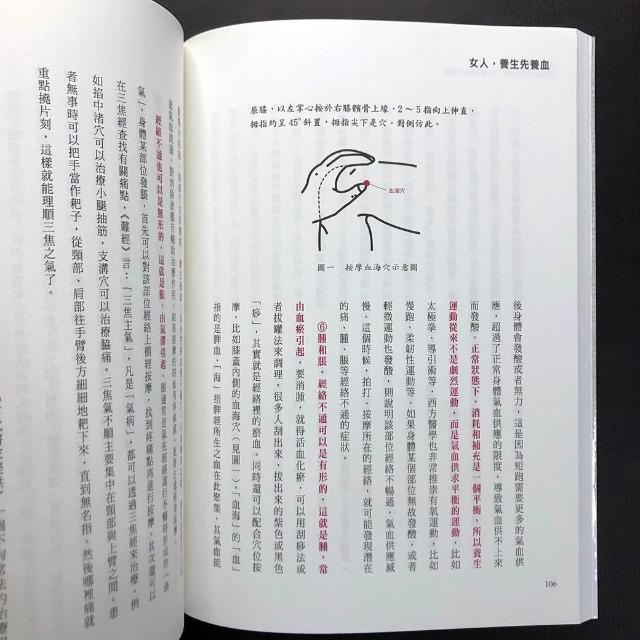 女人，養生先養血
屈膝，以左掌心按於右膝髕骨上緣，2～5指向上伸直，
拇指約呈45°斜置，拇指尖下是穴。對側仿此。
血海穴
圖一　按摩血海穴示意圖
後身體會發酸或者無力，這是因為短跑需要更多的氣血供
應，超過了正常身體氣血供應的限度，導致氣血供不上來
而發酸。正常狀態下，消耗和補充是一個平衡，所以養生
運動從來不是劇烈運動，而是氣血供求平衡的運動，比如
太極拳、導引術等，西方醫學也非常推崇有氧運動，比如
慢跑、柔韌性運動等。如果身體某個部位無故發酸，或者
輕微運動也發酸，則說明該部位經絡不暢通，氣血供應減
慢。這個時候，拍打、按摩所在的經絡，就可能發現潛在
的痛、腫、脹等經絡不通的症狀。
⑥腫和脹。經絡不通可以是有形的，這就是腫，常
由血瘀引起。要消腫，就得活血化瘀，可以用刮痧法或
者拔罐法來調理。很多人刮出來、拔出來的紫色或黑色
「痧」，其實就是經絡裡的瘀血。同時還可以配合穴位按
摩，比如膝蓋內側的血海穴（見圖一）。「血海」的「血」
指的是脾血，「海」指脾經所生之血在此聚集，其氣血能
106
經絡不通也可以是無形的，這就是脹，
氣」。身體某部位發脹，首先可以對該部位經絡上循經按摩，找到疼痛點再進行按摩，其次還可以
在三焦經查找有關痛點，《難經》言：「三焦主氣」，凡是「氣病」，都可以透過三焦經來治療，例
如掐中渚穴可以治療小腿抽筋，支溝穴可以治療脇痛。三焦氣不順主要集中在頸部與上臂之間。患
者無事時可以把手當作耙子，從頸部、肩部往手臂後方細細地耙下來，直到無名指。然後哪裡痛就
重點撓片刻，這樣就能理順三焦之氣了。